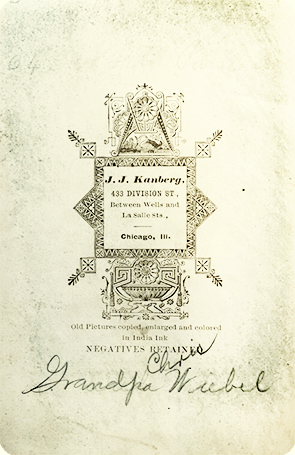 J. J. Kanberg.
433 DIVISION ST.,
Between Wells and
La Salle Sts.,
Chicago, Ill.
Old Pictures copied, enlarged and colored
in India Ink
NEGATIVES RETAINED
Chris
Grandpa Wiebel